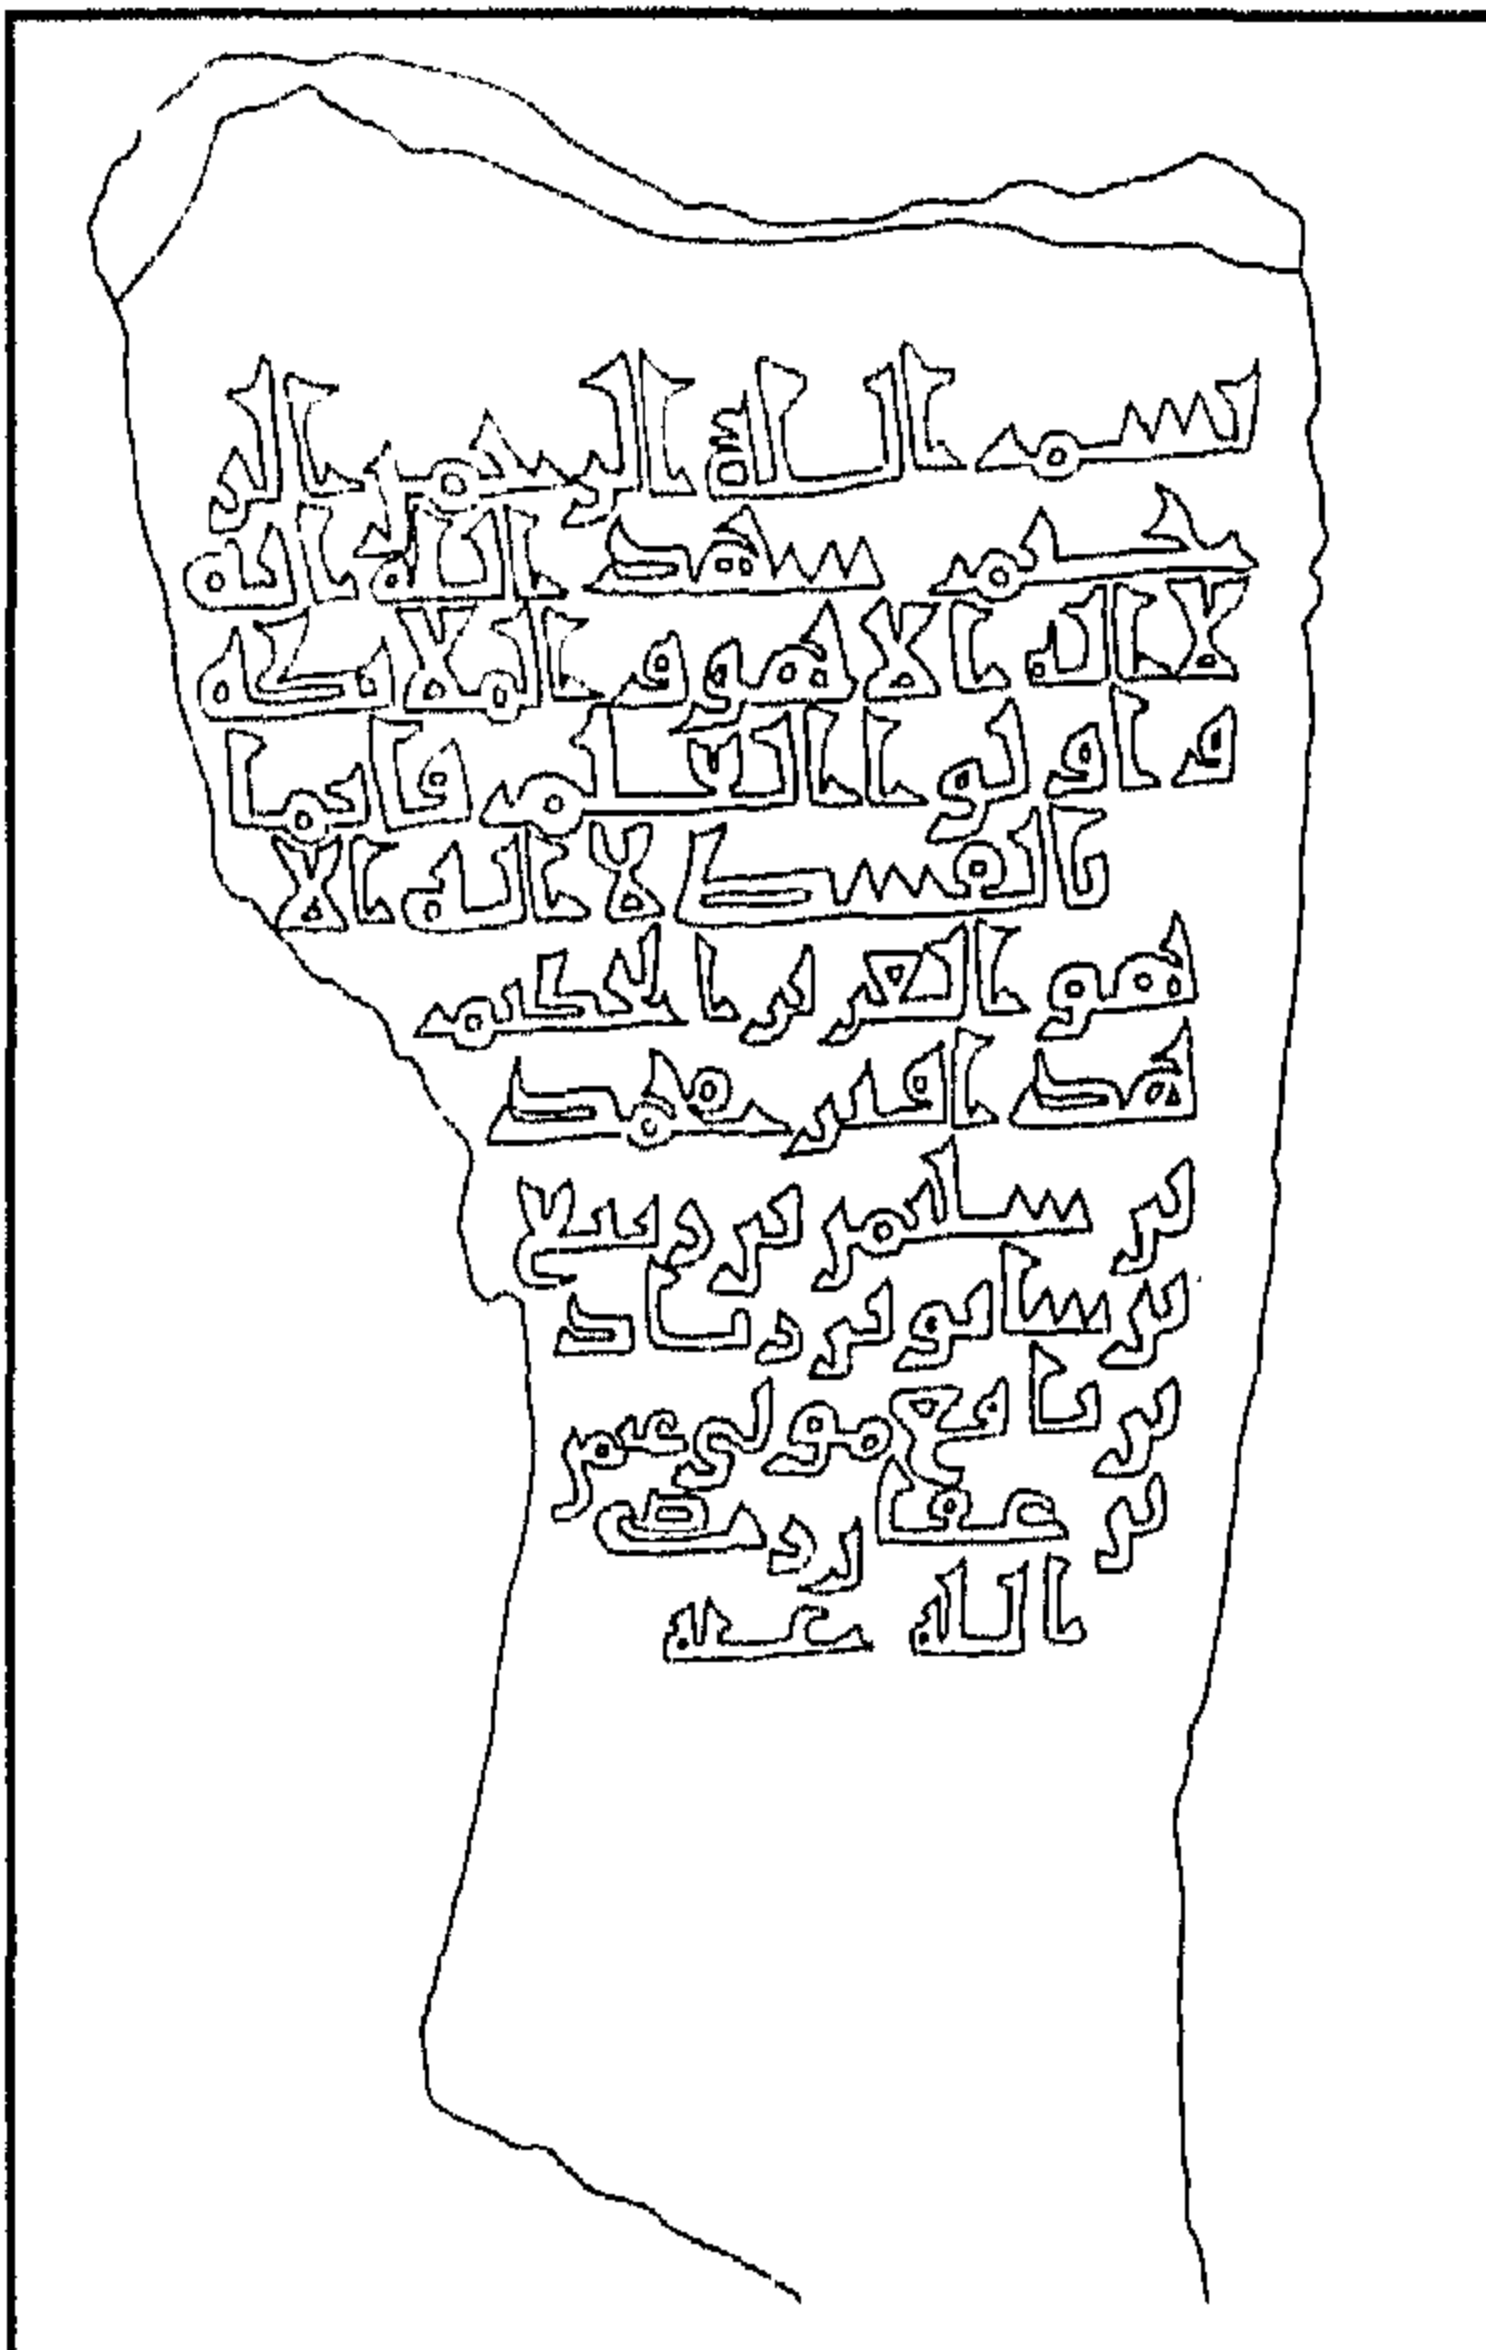 بسم الله الرحمن الر
حيم شهد الله انه
لا اله الا هو و الملائكة
و اولوا العلم قائما
بالقسط لا اله الا
هو العزيز الحكيم
هذا قبر محمد
بن سالم بن ربيع
بن
بن نافع مولى عمر
بن عفان رضي
الله عنه